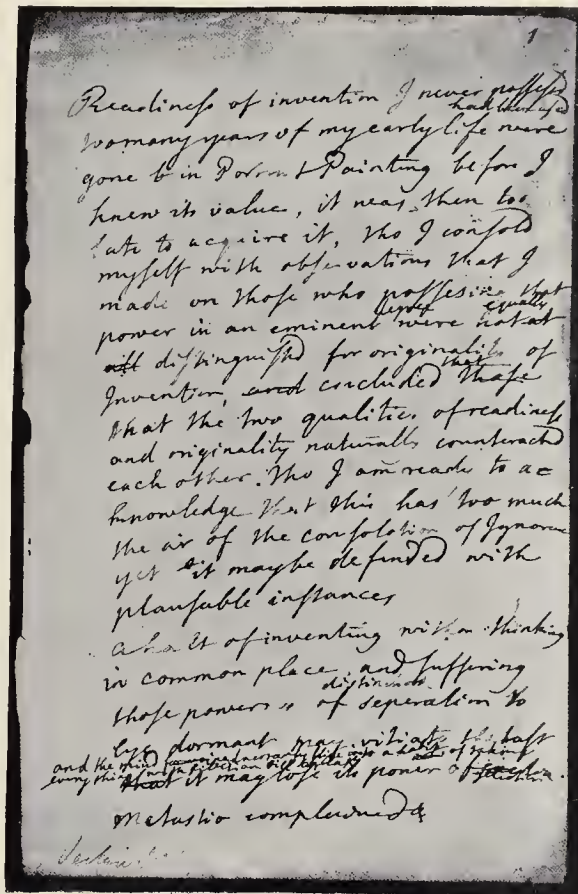 1
Readiness of invention I never possessed
had been used
too many years of my early life were
gone b in Portrait Painting before I
knew its value, it was then too
late to acquire it, tho I consold
myself with observations that I
made on those who possessing that
degree equally
power in an eminent were not at
all distinguished for originality of
that
Invention, and concluded those
that the two qualities of readiness
and originality naturally counteract
each other. tho I am ready to ac=
knowledge that this has too much
the air of the consolation of Ignorance
yet it may be defended with
plausable instances
a habit of inventing without thinking
in common place and suffering
distinction
those powers of seperation to
lye dormant may vitiate the tast
and the mind
every thing
that it may lose its power of
Metastio complained